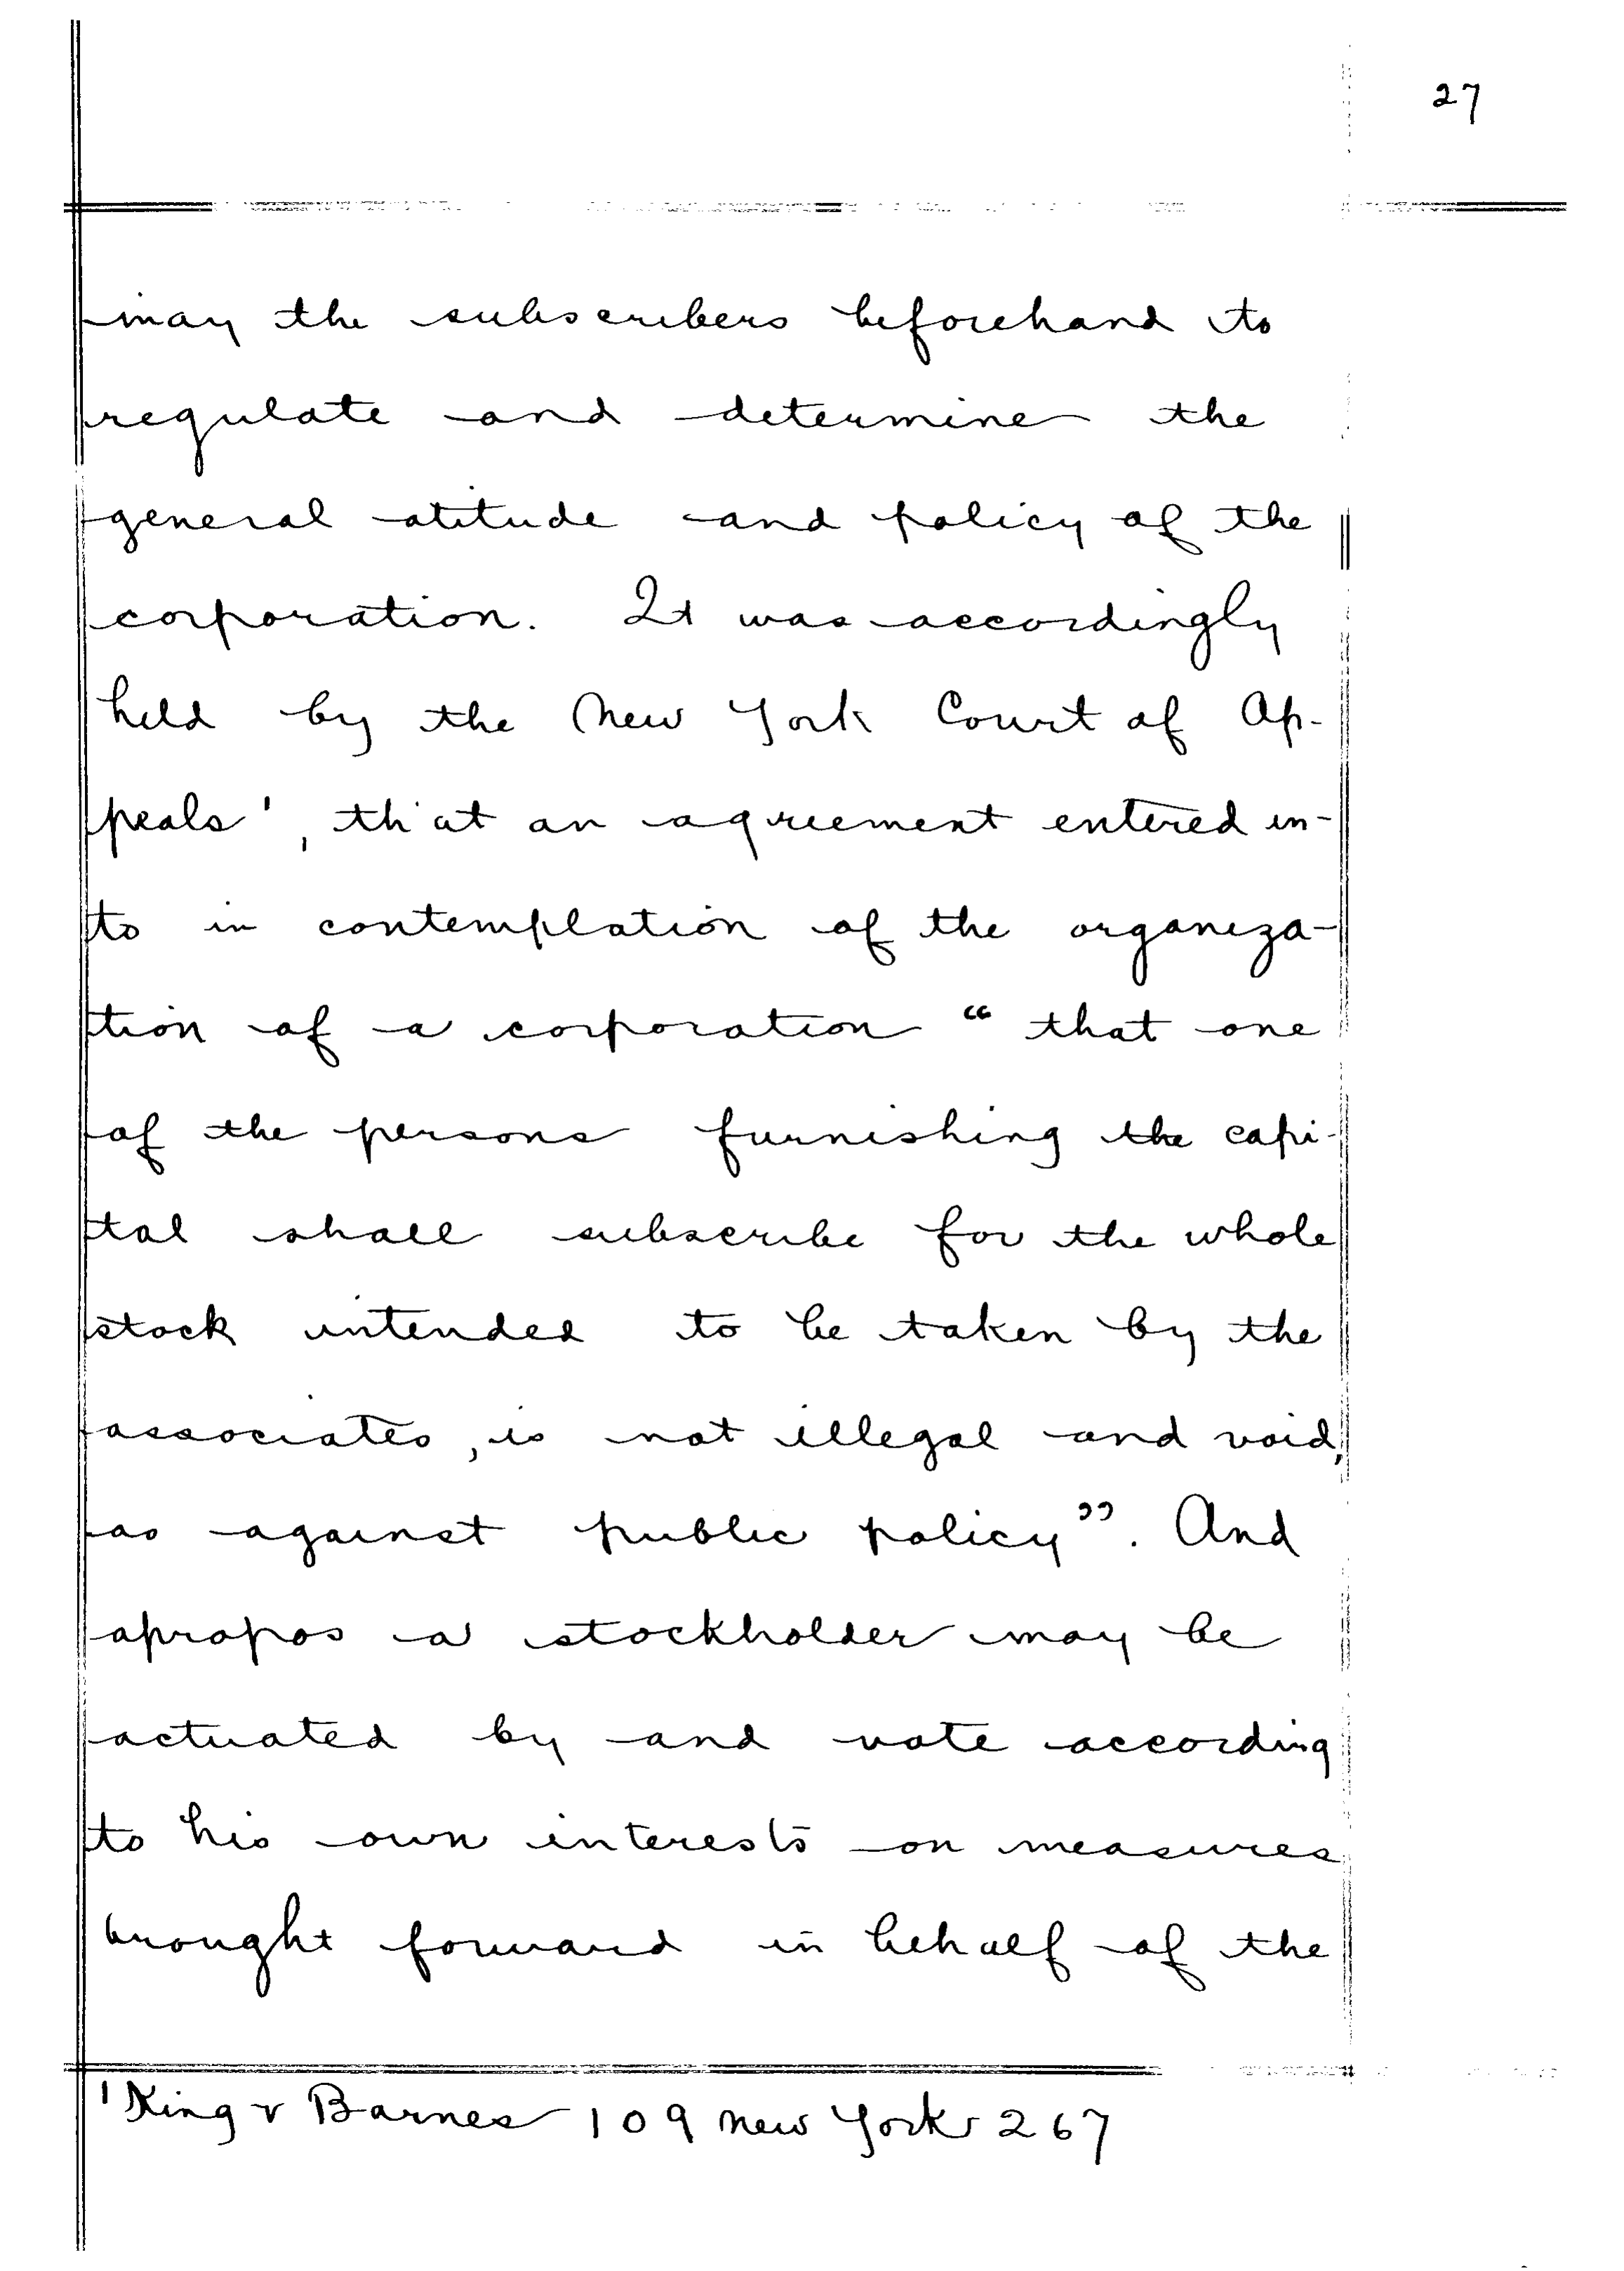 27
may the subscribers beforehand to
regulate and determine the
general atitude and policy of the
corporation. It was accordingly
held by the New York Court of Ap-
peals¹, that an agreement entered in-
to in contemplation of the organiza-
tion of a corporation “that one
of the persons furnishing the capi-
tal shall subscribe for the whole
stock intended to be taken by the
associates, is not illegal and void,
as against public policy”. And
apropos a stockholder may be
actuated by and vote according
to his own interests on measures
brought forward in behalf of the
¹ King v Barnes 109 New York 267